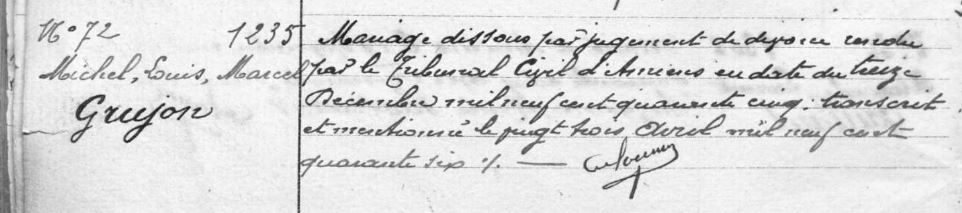 N° 72 1235
Michel, Louis, Marcel
Grujon
Mariage dissous par jugement de divorce rendu
par le Tribunal Civil d'Amiens en date du treize
Décembre mil neuf cent quarante cinq. transcrit
et mentionné le vingt trois Avril mil neuf cent
quarante six ·/. —